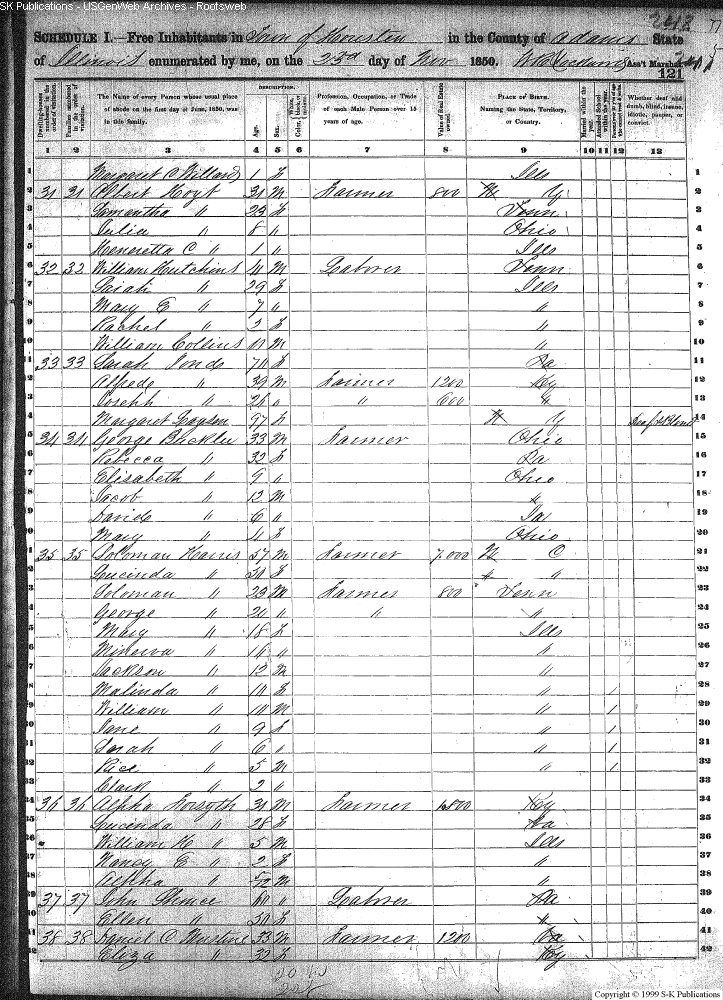 SK Publications - USGenWeb Archives - Rootsweb
SCHEDULE I.—Free Inhabitants in Town of Houston in the County of Adams State
of Illinois enumerated by me, on the 23d day of Nov 1850. Ass't Marshal.
121
DESCRIPTION.
Dwelling-houses numbered in the order of visitation.
Families numbered in the order of visitation.
The Name of every Person whose usual place of abode on the first day of June, 1850, was in this family.
Age.
Sex.
White, black, or mulatto.
Color,
Profession, Occupation, or Trade of each Male Person over 15 years of age.
Value of Real Estate owned.
PLACE OF BIRTH. Naming the State, Territory, or Country.
Married within the year.
Attended School within the year.
Whether deaf and dumb, blind, insane, idiotic, pauper, or convict.
1 2 3 4 5 6 7 8 9 10 11 12 13
1 Margaret C Willard 1 F Ills 1
2 31 31 Albert Hoyt 31 M Farmer 800 N Y 2
3 Samantha " 23 F Tenn 3
4 Julia " 8 " Ohio 4
5 Heneretta C " 1 " Ills 5
6 32 32 William Hutchins 41 M Laborer Tenn 6
7 Sarah " 29 F Ills 7
8 Mary E " 7 " " 8
9 Rachel " 2 F " 9
10 William Collins M " 10
11 33 33 Sarah F Pa 11
12 Alfred " 39 M Farmer 1200 Ky 12
13 Joseph " 26 " " 600 " 13
14 Margaret 97 F N Y Deaf & Blind 14
15 34 34 George Buckler 33 M Farmer Ohio 15
16 Rebecca " 32 F Pa 16
17 Elisabeth " 9 " Ohio 17
18 Jacob " 12 M " 18
19 David " 6 " Ia 19
20 Mary " 4 F Ohio 20
21 35 35 Soloman Harris 57 M Farmer 7,000 N C 21
22 Lucinda " 50 F " " 22
23 Soloman " 23 M Farmer 800 Tenn 23
24 George " 20 " " " 24
25 Mary " 18 F Ills 25
26 Minerva " 16 " " 26
27 Jackson " 12 M " 27
28 Malinda " 10 F " 1 28
29 William " 10 M " 1 29
30 Jane " 9 F 1 30
31 Sarah " 6 " " 1 31
32 Rice " 5 M " 1 32
33 Clark " 2 " 33
34 36 36 Alpha Forsyth 31 M Farmer 1,800 Ky 34
35 Lucinda " 28 F Va 35
36 William H " 5 M Ills 36
37 Nancy E " 2 F " 37
38 Alpha " 5/12 M " 38
39 37 37 John 60 " Laborer Va 39
40 Ellen " 50 F " 40
41 38 38 Daniel C 33 M Farmer 1200 Va 41
42 Eliza " 33 F Ky 42
Copyright © 1999 S-K Publications